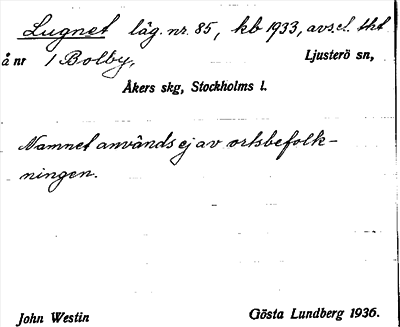 Lugnet läg. nr. 85, kb 1933, avs. el. tkt
å nr 1 Bolby, Ljusterö sn,
Åkers skg, Stockholms l.
Namnet används ej av ortsbefolk-
ningen.
John Westin Gösta Lundberg 1936.